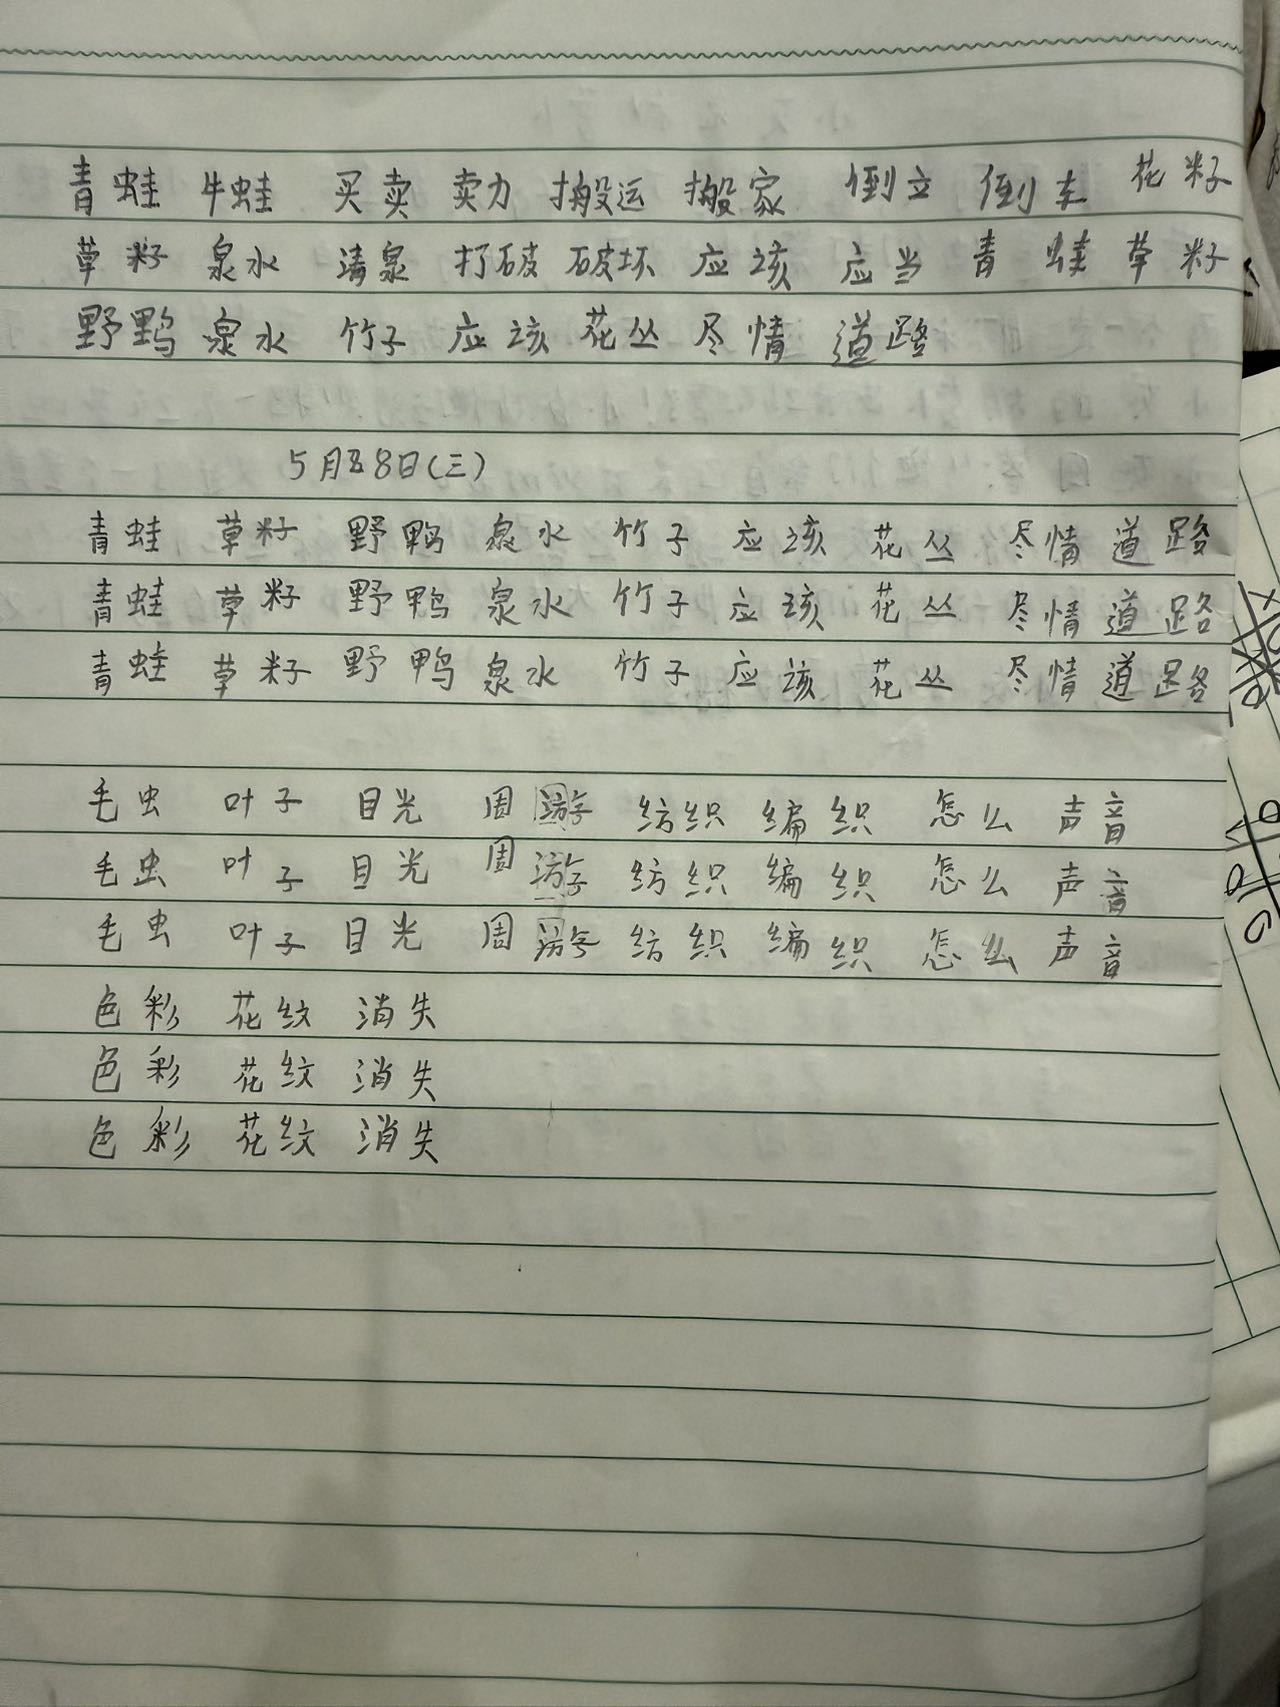 青蛙 牛蛙 买卖 卖力 搬运 搬家 倒立 倒车 花籽
草籽 泉水 清泉 打破 破坏 应该 应当 青蛙 草籽
野鸭 泉水 竹子 应该 花丛 尽情 道路
5月28日(三)
青蛙 草籽 野鸭 泉水 竹子 应该 花丛 尽情 道路
青蛙 草籽 野鸭 泉水 竹子 应该 花丛 尽情 道路
青蛙 草籽 野鸭 泉水 竹子 应该 花丛 尽情 道路
毛虫 叶子 目光 周游 纺织 编织 怎么 声音
毛虫 叶子 目光 周游 纺织 编织 怎么 声音
毛虫 叶子 目光 周游 纺织 编织 怎么 声音
色彩 花纹 消失
色彩 花纹 消失
色彩 花纹 消失